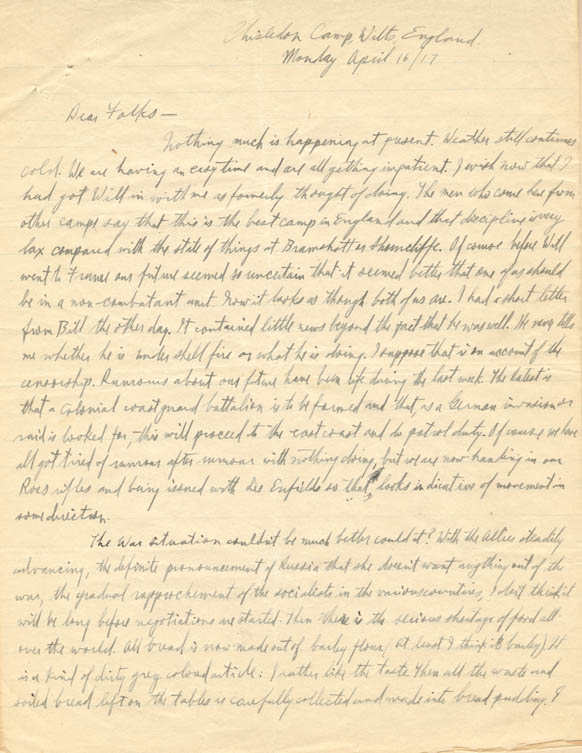 Chisledon Camp, Wilts, England.
Monday April 16/17
Dear Folks —
Nothing much is happening at present. Weather still continues
cold. We are having an easy time and are all getting impatient. I wish now that I
had got Will in with me as formerly thought of doing. The men who come here from
other camps say that this is the best camp in England and that discipline is very
lax compared with the state of things at Bramshott or Shorncliffe. Of course before Will
went to France our future seemed so uncertain that it seemed better that one of us should
be in a non-combatant unit. Now it looks as though both of us are. I had a short letter
from Bill the other day. It contained little news beyond the fact that he was well. He never tells
me whether he is under shell fire or what he is doing. I suppose that is on account of the
censorship. Rumours about our future have been rife during the last week. The latest is
that a Colonial coastguard battalion is to be formed and that, as a German invasion or
raid is looked for, this will proceed to the east coast and do patrol duty. Of course we have
all got tired of rumour after rumour with nothing doing, but we are now handing in our
Ross rifles and being issued with Lee Enfields so that looks indicative of movement in
some direction.
The War situation couldn't be much better could it? With the Allies steadily
advancing, the definite pronouncement of Russia that she doesn't want anything out of the
war, the gradual rapprochement of the socialists in the various countries, I don't think it
will be long before negotiations are started. Then there is the serious shortage of food all
over the world. All bread is now made out of barley flour, (at least I think it's barley). It
is a kind of dirty grey coloured article: I rather like the taste. Then all the waste and
soiled bread left on the tables is carefully collected and made into bread pudding. I